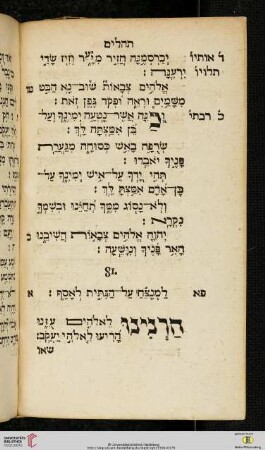 תהלים
ד אותיו יְכַרְסְמֶנָּה חֲזִיר מִיָּעַר וְזִיז שָׂדַי
תלויו יִרְעֶנָּה׃
אֱלֹהִים צְבָאוֹת שׁוּב־נָא הַבֵּט טו
מִשָּׁמַיִם וּרְאֵה וּפְקֹד גֶּפֶן זֹאת׃
כ רבתי וְכַנָּה אֲשֶׁר־נָטְעָה יְמִינֶךָ וְעַל־
בֵּן אִמַּצְתָּה לָּךְ׃
שְׂרֻפָה בָאֵשׁ כְּסוּחָה מִגַּעֲרַת
פָּנֶיךָ יֹאבֵדוּ׃
תְּהִי יָדְךָ עַל־אִישׁ יְמִינֶךָ עַל־
בֶּן־אָדָם אִמַּצְתָּ לָּךְ׃
וְלֹא־נָסוֹג מִמֶּךָּ תְּחַיֵּנוּ וּבְשִׁמְךָ
נִקְרָא׃
יְהוָה אֱלֹהִים צְבָאוֹת הֲשִׁיבֵנוּ כ
הָאֵר פָּנֶיךָ וְנִוָּשֵׁעָה׃
81.
פא לַמְנַצֵּחַ עַל־הַגִּתִּית לְאָסָף׃ א
הַרְנִינוּ לֵאלֹהִים עוּזֵּנוּ
הָרִיעוּ לֵאלֹהֵי יַעֲקֹב׃
שאו
UNIVERSITÄTS-BIBLIOTHEK HEIDELBERG
© Universitätsbibliothek Heidelberg